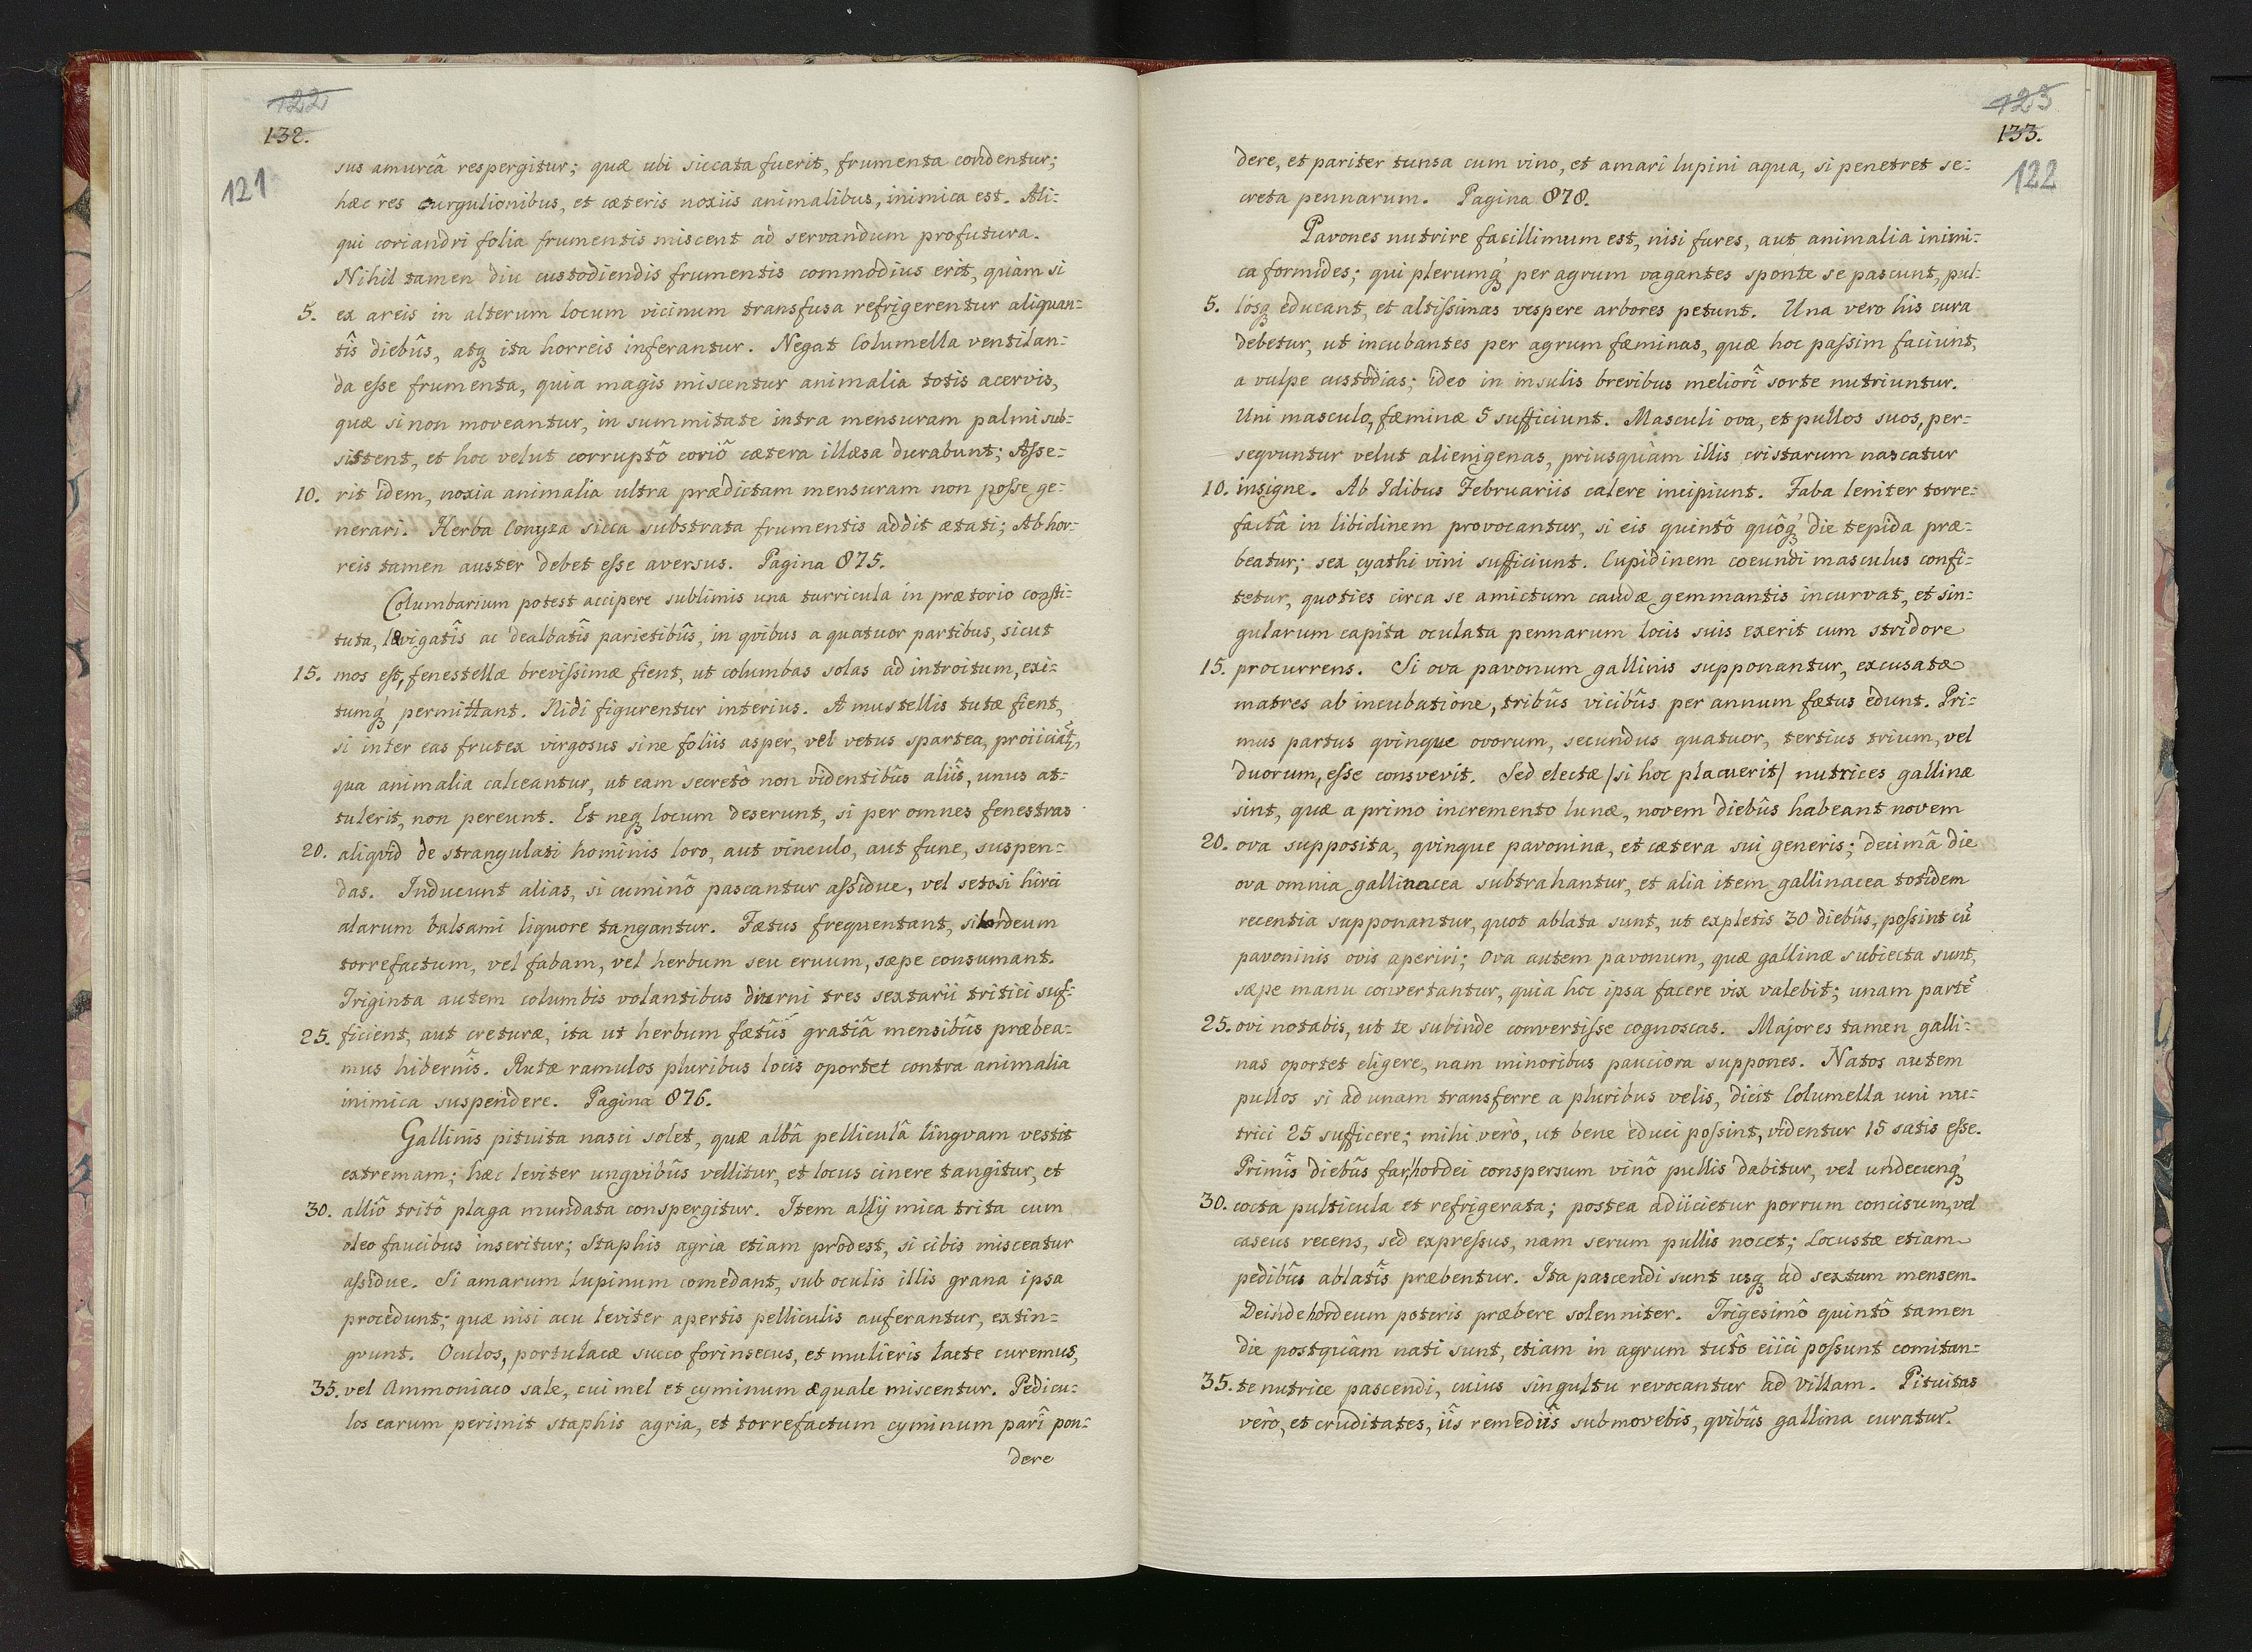 122
132.
121
sus amurcâ respergitur; quæ ubi siccata fuerit, frumenta condentur;
hæc res curgulionibus, et cæteris noxiis animalibus, inimica est. Ali=
qui coriandri folia frumentis miscent ad servandum profutura.
Nihil tamen diu custodiendis frumentis commodius erit, quàm si
5. ex areis in alterum locum vicinum transfusa refrigerentur aliquan=
tîs diebûs, atq; ita horreis inferantur. Negat Columella ventilan=
da eſse frumenta, quia magis miscentur animalia totis acervis,
quæ si non moveantur, in summitate intra mensuram palmi sub=
sistent, et hoc velut corruptô coriô cætera illæsa durabunt; Aſse=
10. rit idem, noxia animalia ultra prædictam mensuram non poſse ge=
nerari. Herba Conyza sicca substrata frumentis addit ætati; Ab hor=
reis tamen auster debet eſse aversus. Pagina 875.
Columbarium potest accipere sublimis una turricula in prætorio consti=
tuta, lævigatîs ac dealbatîs parietibûs, in qvibus a quatuor partibus, sicut
15. mos est, fenestellæ breviſsimæ fient, ut columbas solas ad introitum, exi=
tumq́; permittant. Nidi figurentur interius. A mustellis tutæ fient,
si inter eas frutex virgosus sine foliis asper, vel vetus spartea, proiiciat,
qua animalia calceantur, ut eam secretò non videntibûs aliîs, unus at=
tulerit, non pereunt. Et neq; locum deserunt, si per omnes fenestras
20. aliqvid de strangulati hominis loro, aut vinculo, aut fune, suspen=
das. Inducunt alias, si cuminô pascantur aſsidue, vel setosi hirci
alarum balsami liquore tangantur. Fætus frequentant, si hordeum
torrefactum, vel fabam, vel herbum seu ervum, sæpe consumant.
Triginta autem columbis volantibus diurni tres sextarii tritici suf=
25. ficient, aut creturæ, ita ut herbum fætûs gratiâ mensibûs præbea=
mus hibernîs. Rutæ ramulos pluribus locis oportet contra animalia
inimica suspendere. Pagina 876.
Gallinis pituita nasci solet, quæ albâ pelliculâ lingvam vestit
extremam; hæc leviter ungvibûs vellitur, et locus cinere tangitur, et
30. alliô tritô plaga mundata conspergitur. Item allij mica trita cum
oleo faucibus inseritur; Staphis agria etiam prodest, si cibis misceatur
aſsidue. Si amarum lupinum comedant, sub oculis illis grana ipsa
procedunt; quæ nisi acu leviter apertis pelliculis auferantur, extin=
gvunt. Oculos, portulacæ succo forinsecus, et mulieris lacte curemus,
35. vel Ammoniaco sale, cui mel et cyminum æquale miscentur. Pedicu=
los earum perimit staphis agria, et torrefactum cyminum parî pon=
dere
123
133.
122
dere, et pariter tunsa cum vino, et amari lupini aqua, si penetret se=
creta pennarum. Pagina 878.
Pavones nutrire facillimum est, nisi fures, aut animalia inimi=
ca formides; qui plerumq́; per agrum vagantes sponte se pascunt, pul=
5. losq; educant, et altiſsimas vespere arbores petunt. Una vero his cura
debetur, ut incubantes per agrum fæminas, quæ hoc paſsim faciunt,
a vulpe custodias; ideo in insulis brevibus meliorî sorte nutriuntur.
Uni masculo, fæminæ 5 sufficiunt. Masculi ova, et pullos suos, per=
seqvuntur velut alienigenas, priusquàm illis cristarum nascatur
10. insigne. Ab Idibus Februariis calere incipiunt. Faba leniter torre=
factâ in libidinem provocantur, si eis quintô quôq́; die tepida præ=
beatur; sex cyathi vini sufficiunt. Cupidinem coeundi masculus confi=
tetur, quoties circa se amictum caudæ gemmantis incurvat, et sin=
gularum capita oculata pennarum locis suis exerit cum stridore
15. procurrens. Si ova pavonum gallinis supponantur, excusatæ
matres ab incubatione, tribûs vicibûs per annum fætus edunt. Pri=
mus partus qvinque ovorum, secundus quatuor, tertius trium, vel
duorum, eſse consvevit. Sed electæ /si hoc placuerit/ nutrices gallinæ
sint, quæ a primo incremento lunæ, novem diebûs habeant novem
20. ova supposita, qvinque pavonina, et cætera sui generis; decimâ die
ova omnia gallinacea subtrahantur, et alia item gallinacea totidem
recentia supponantur, quot ablata sunt, ut expletis 30 diebûs, poſsint cũ
pavoninis ovis aperiri; Ova autem pavonum, quæ gallinæ subiecta sunt,
sæpe manu convertantur, quia hoc ipsa facere vix valebit; unam partẽ
25. ovi notabis, ut te subinde convertiſse cognoscas. Majores tamen galli=
nas oportet eligere, nam minoribus pauciora suppones. Natos autem
pullos si ad unam transferre a pluribus velis, dicit Columella uni nu=
trici 25 sufficere; mihi verò, ut bene educi poſsint, videntur 15 satis eſse.
Primîs diebûs far hordei conspersum vinô pullis dabitur, vel undecunq́;
30. cocta pulticula et refrigerata; postea adiicietur porrum concisum, vel
caseus recens, sed expreſsus, nam serum pullis nocet; Locustæ etiam
pedibûs ablatîs præbentur. Ita pascendi sunt usq; ad sextum mensem.
Deinde hordeum poteris præbere solenniter. Trigesimô quintô tamen
die postquàm nati sunt, etiam in agrum tutô eiici poſsunt comitan=
35. te nutrice pascendi, cuius singultu revocantur ad villam. Pituitas
verò, et cruditates, iîs remediîs submovebis, qvibûs gallina curatur.